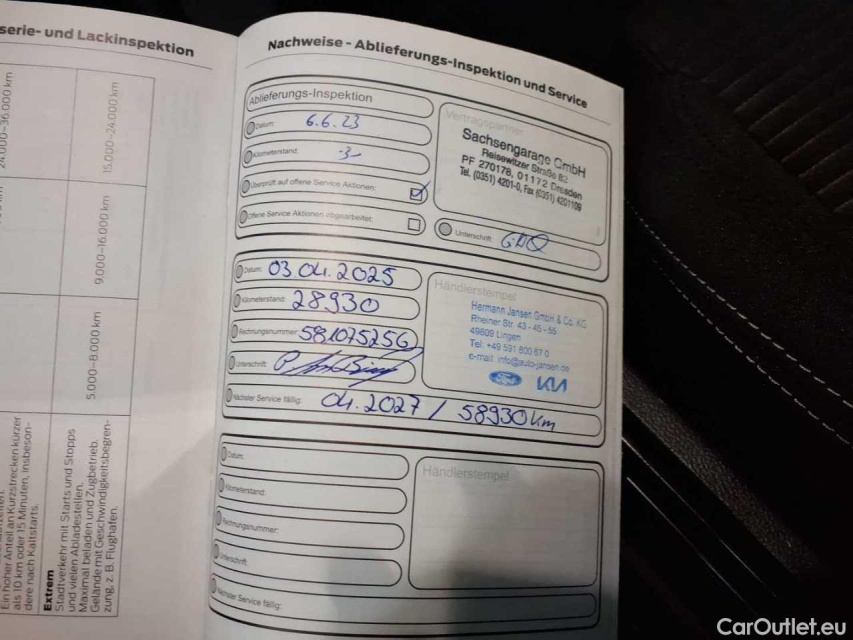 serie- und Lackinspektion
24.000–36.000 km
15.000–24.000 km
9.000–16.000 km
5.000–8.000 km
Ein hoher Anteil an Kurzstrecken kürzer
als 10 km oder 15 Minuten, insbeson-
dere nach Kaltstarts.
Extrem
Stadtverkehr mit Starts und Stopps
und vielen Abladestellen.
Maximal beladen und Zugbetrieb.
Gelände mit Geschwindigkeitsbegren-
zung, z. B. Flughäfen.
Nachweise - Ablieferungs-Inspektion und Service
Ablieferungs-Inspektion
Datum: 6.6.23
Kilometerstand: -3-
Überprüft auf offene Service Aktionen:
Offene Service Aktionen abgearbeitet:
Vertragspartner
Sachsengarage GmbH
Reisewitzer Straße 82
PF 270178, 01172 Dresden
Tel. (0351) 4201-0, Fax (0351) 4201109
Unterschrift:
Datum: 03.04.2025
Kilometerstand: 28930
Rechnungsnummer: 581075256
Unterschrift:
Nächster Service fällig: 04.2027 / 58930 km
Händlerstempel
Hermann Jansen GmbH & Co. KG
Rheiner Str. 43 - 45 - 55
49809 Lingen
Tel. +49 591 800 67 0
e-mail: info@auto-jansen.de
Ford KIA
Datum:
Kilometerstand:
Rechnungsnummer:
Unterschrift:
Nächster Service fällig:
Händlerstempel
CarOutlet.eu